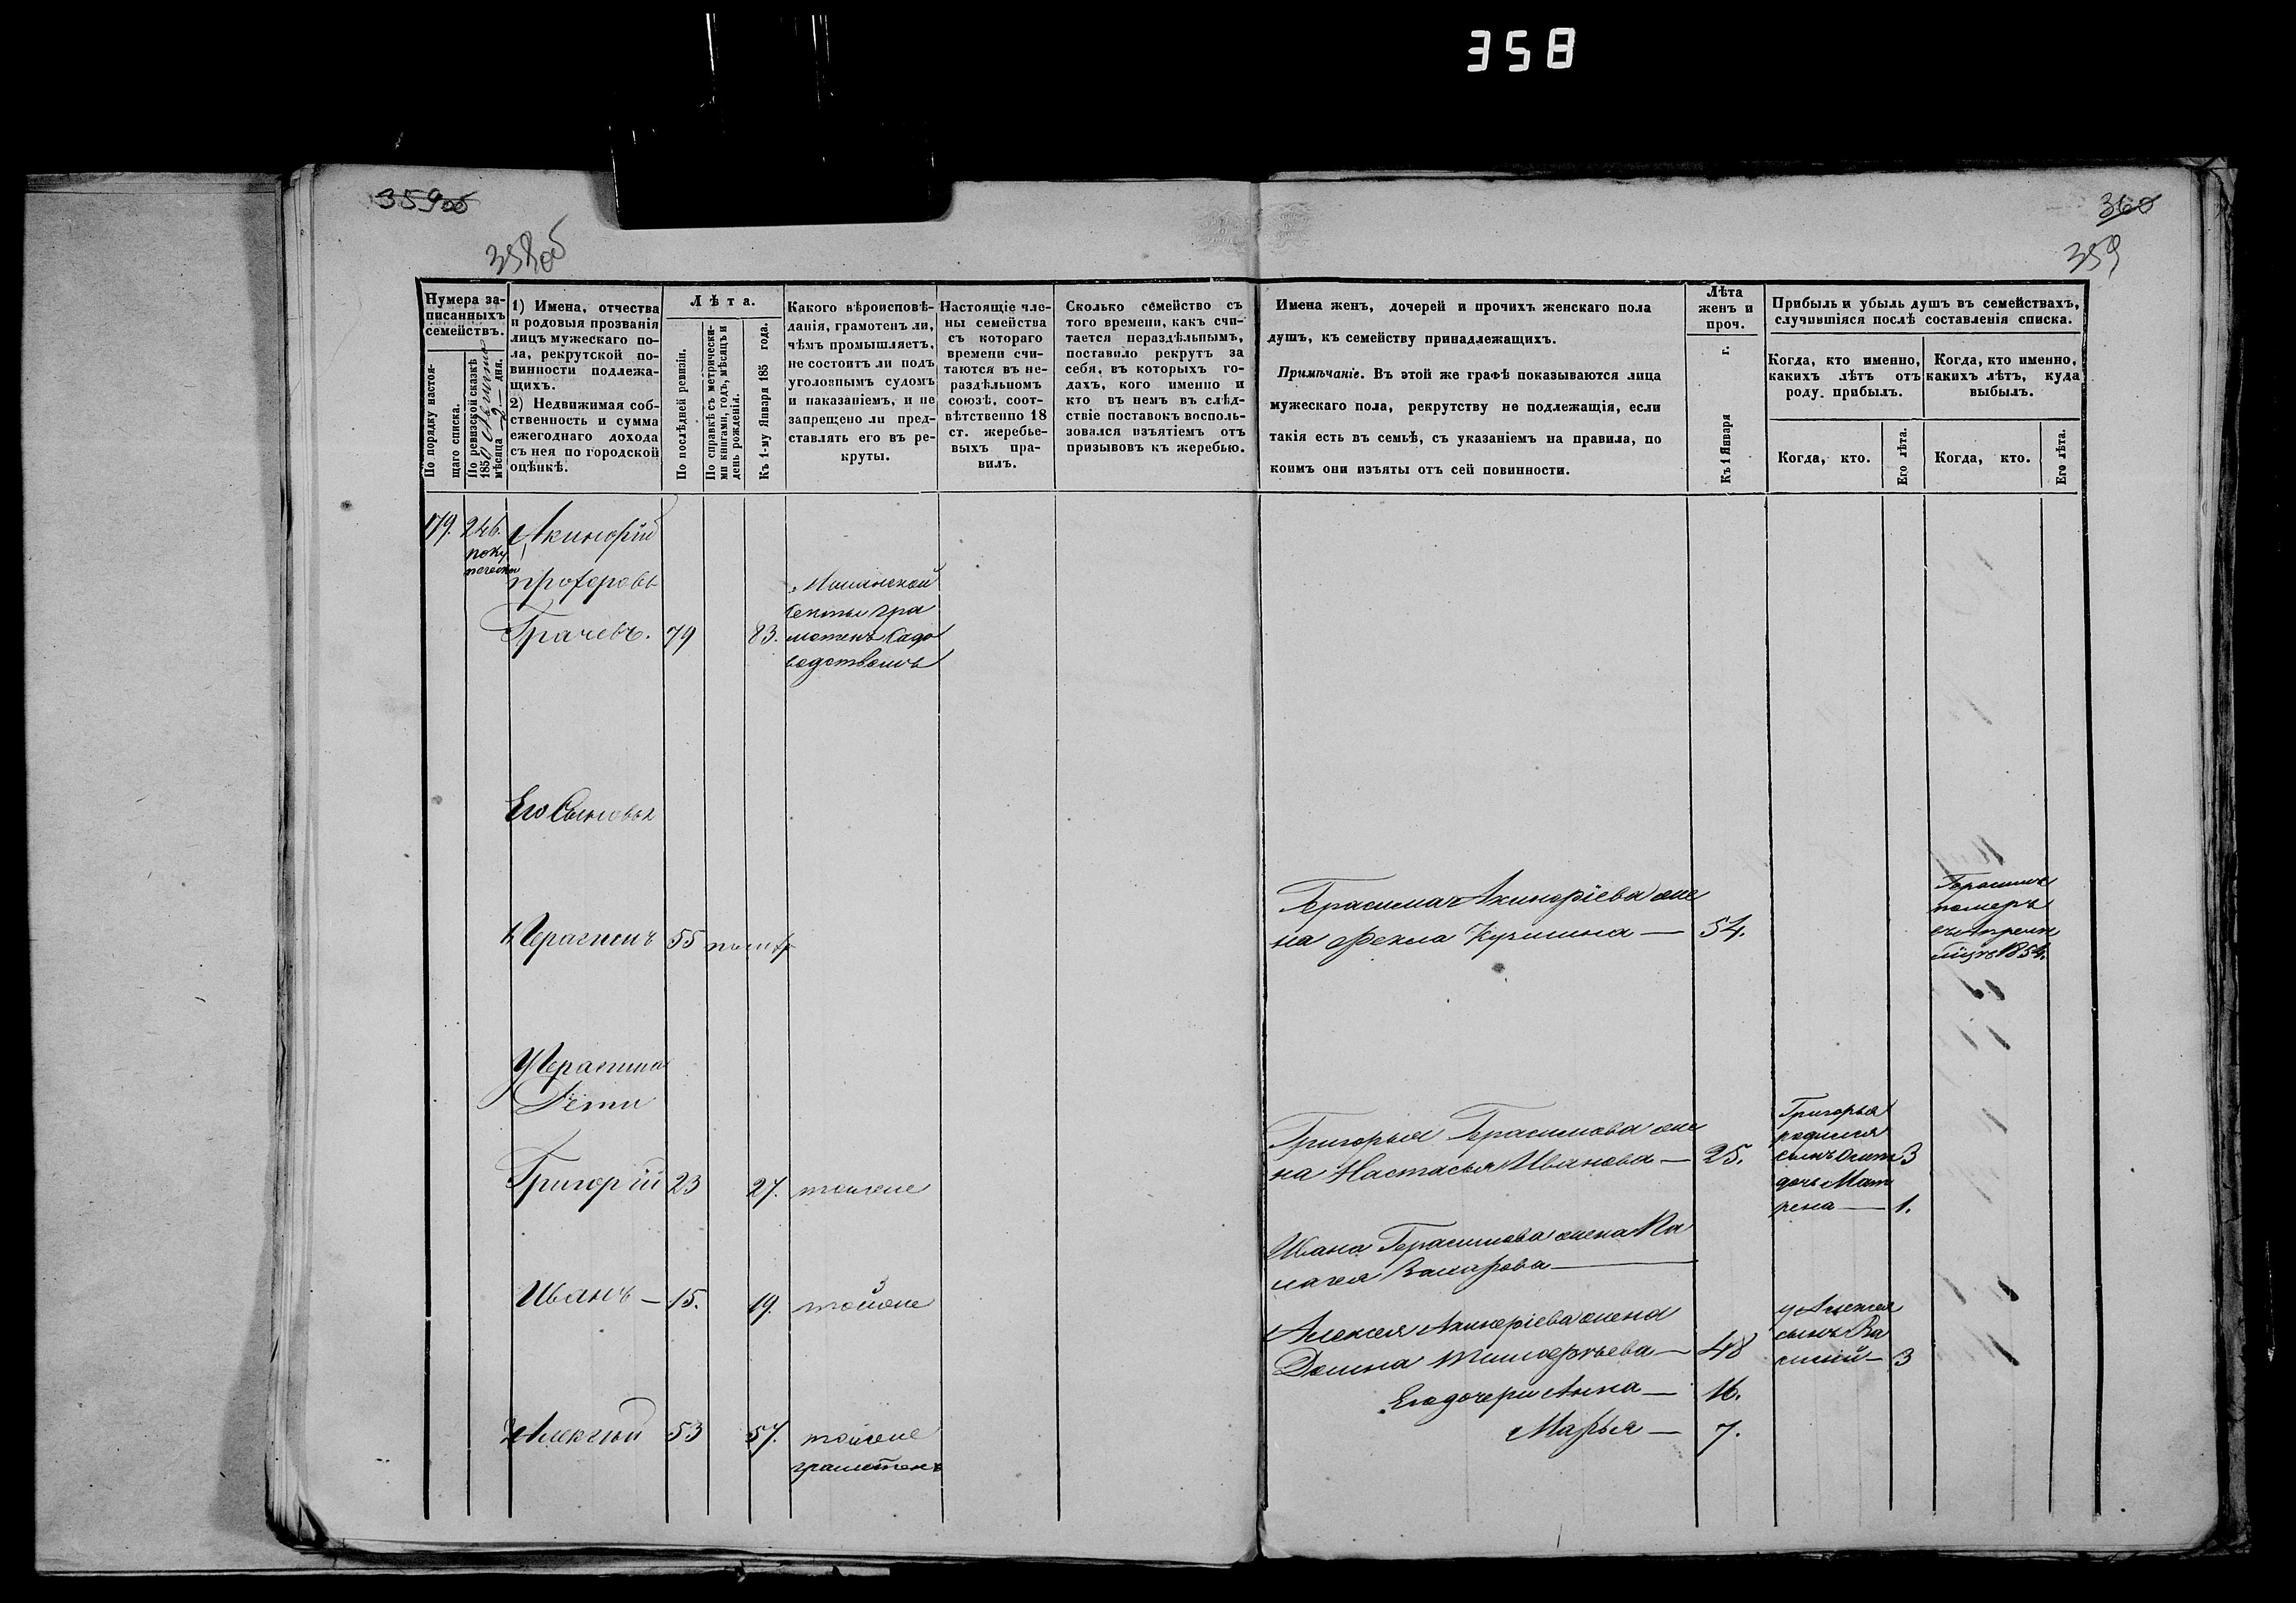 358
359об
358об
360
359
Нумера за-
писанныхъ
семействъ.
По порядку настоя-
щаго списка.
По ревизской сказкѣ
1850
мѣсяца 2 дня.
1) Имена, отчества
и родовыя прозванія
лицъ мужескаго по-
ла, рекрутской по-
винности подлежа-
щихъ.
2) Недвижимая соб-
ственность и сумма
ежегоднаго дохода
съ нея по городской
оцѣнкѣ.
Лѣта.
По послѣдней ревизіи.
По справкѣ съ метрически-
ми книгами, годъ, мѣсяцъ и
день рожденія.
Къ 1-му Января 185 года.
Какого вѣроисповѣ-
данія, грамотенъ ли,
чѣмъ промышляетъ,
не состоитъ ли подъ
уголовнымъ судомъ
и наказаніемъ, и не
запрещено ли пред-
ставлять его въ ре-
круты.
Настоящіе чле-
ны семейства
съ котораго
времени счи-
таются въ не-
раздѣльномъ
союзѣ, соот-
вѣтственно 18
ст. жеребье-
выхъ пра-
вилъ.
Сколько семейство съ
того времени, какъ счи-
тается нераздѣльнымъ,
поставило рекрутъ за
себя, въ которыхъ го-
дахъ, кого именно и
кто въ немъ въ слѣд-
ствіе поставокъ восполь-
зовался изъятіемъ отъ
призывовъ къ жеребью.
Имена женъ, дочерей и прочихъ женскаго пола
душъ, къ семейству принадлежащихъ.
Примѣчаніе. Въ этой же графѣ показываются лица
мужескаго пола, рекрутству не подлежащія, если
такія есть въ семьѣ, съ указаніемъ на правила, по
коимъ они изъяты отъ сей повинности.
Лѣта
женъ и
проч.
Къ 1 Января г.
Прибыль и убыль душъ въ семействахъ,
случившіяся послѣ составленія списка.
Когда, кто именно,
какихъ лѣтъ отъ
роду прибылъ.
Когда, кто именно,
какихъ лѣтъ, куда
выбылъ.
Когда, кто.
Его лѣта.
Когда, кто.
Его лѣта.
179. 246. Акинфій
поку
печески
Прохоровъ
Грачевъ. 79 83.
секты гра
мотенъ садо
водствомъ
Его Сыновья
1 Герасимъ 55 померъ
Герасима Акинфіева же
на Фекла Кузмина — 54.
Герасимъ
померъ
въ Апреле
мцѣ 1854.
У Герасима
Дѣти
Григорій 23 27. тойже
Григорья Герасимова же
на Настасья Иванова — 25.
Григорья
родился
сынъ Осип 3
дочь Мат
рена — 1.
Иванъ — 15. 19. тойже
Ивана Герасимова жена Пе
лагея Захарова —
2 Алексѣй 53 57. тойже
грамотенъ
Алексея Акинфіева жена
Домна Тимофеьева — 48
Его дочери Анна — 16.
Марья — 7.
у Алексея
сынъ Ва
силій — 3